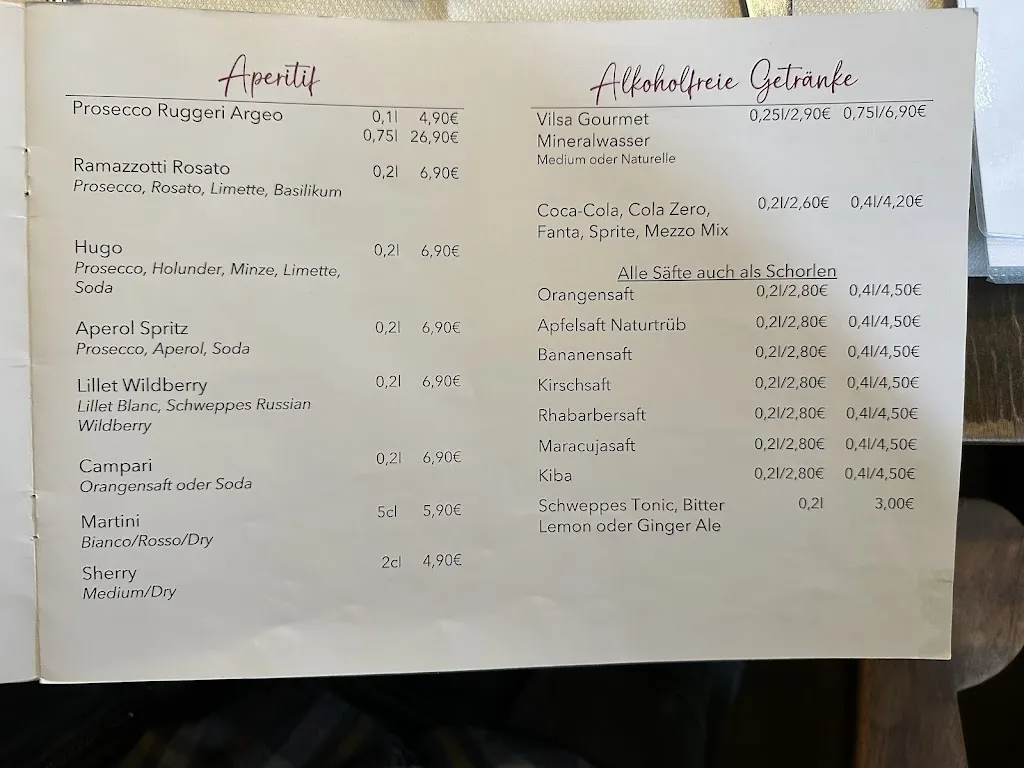 Aperitif
Prosecco Ruggeri Argeo 0,1l 4,90€
0,75l 26,90€
Ramazzotti Rosato 0,2l 6,90€
Prosecco, Rosato, Limette, Basilikum
Hugo 0,2l 6,90€
Prosecco, Holunder, Minze, Limette,
Soda
Aperol Spritz 0,2l 6,90€
Prosecco, Aperol, Soda
Lillet Wildberry 0,2l 6,90€
Lillet Blanc, Schweppes Russian
Wildberry
Campari 0,2l 6,90€
Orangensaft oder Soda
Martini 5cl 5,90€
Bianco/Rosso/Dry
Sherry 2cl 4,90€
Medium/Dry
Alkoholfreie Getränke
Vilsa Gourmet 0,25l/2,90€ 0,75l/6,90€
Mineralwasser
Medium oder Naturelle
Coca-Cola, Cola Zero, 0,2l/2,60€ 0,4l/4,20€
Fanta, Sprite, Mezzo Mix
Alle Säfte auch als Schorlen
Orangensaft 0,2l/2,80€ 0,4l/4,50€
Apfelsaft Naturtrüb 0,2l/2,80€ 0,4l/4,50€
Bananensaft 0,2l/2,80€ 0,4l/4,50€
Kirschsaft 0,2l/2,80€ 0,4l/4,50€
Rhabarbersaft 0,2l/2,80€ 0,4l/4,50€
Maracujasaft 0,2l/2,80€ 0,4l/4,50€
Kiba 0,2l/2,80€ 0,4l/4,50€
Schweppes Tonic, Bitter 0,2l 3,00€
Lemon oder Ginger Ale